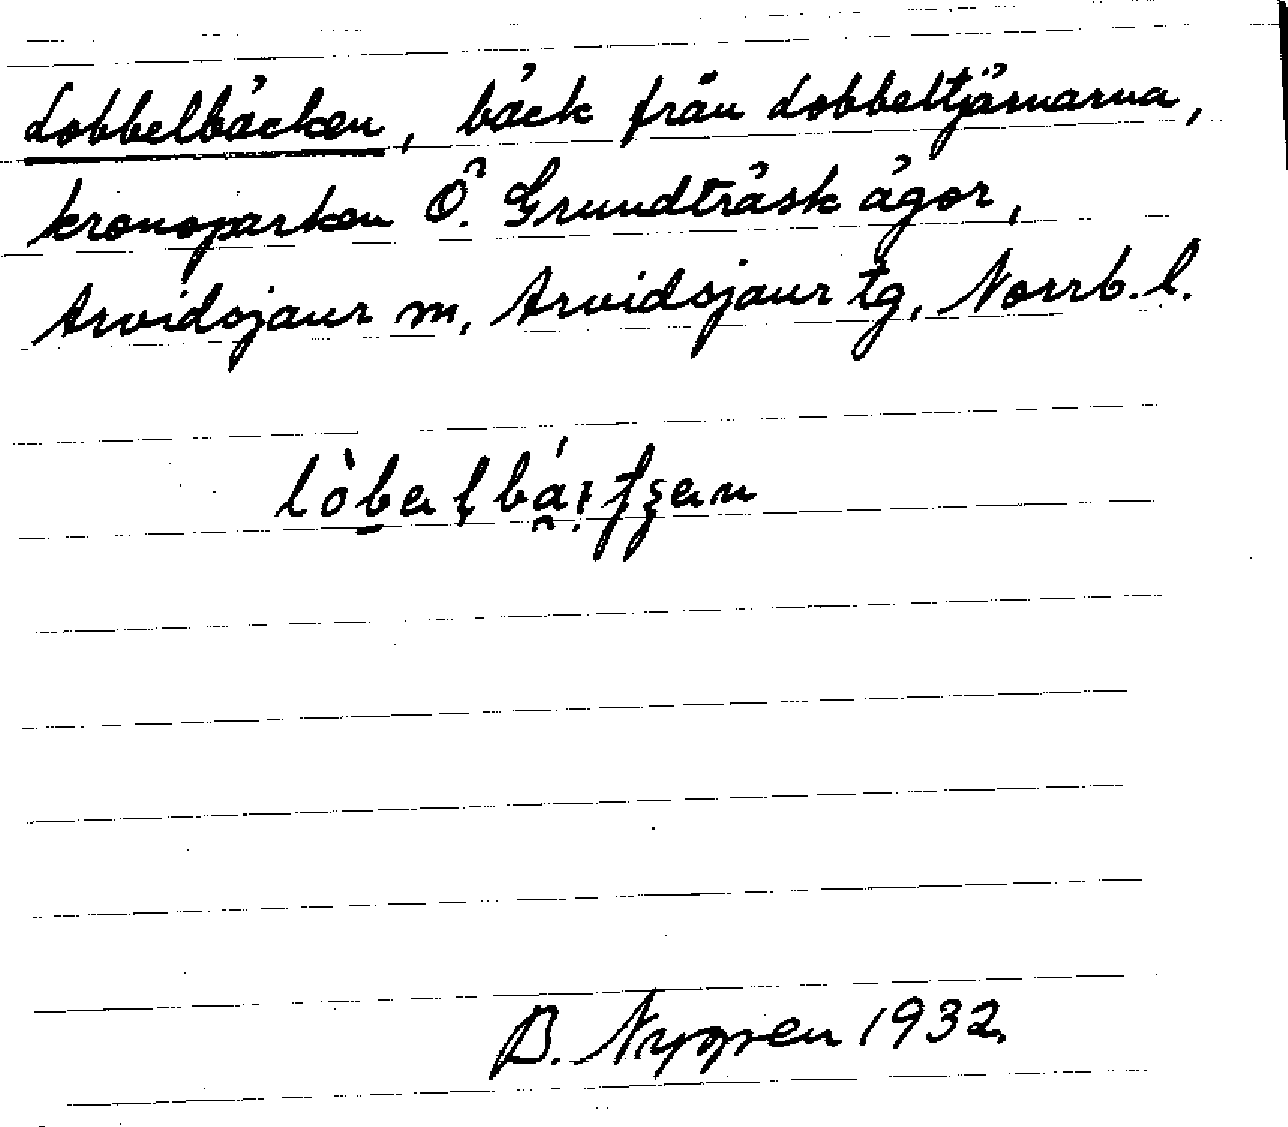 Lobbelbäcken, bäck från Lobbeltjärnarna,
kronoparken Ö. Grundträsk ägor,
Arvidsjaur m, Arvidsjaur tg, Norrb. l.
B. Nygren 1932.